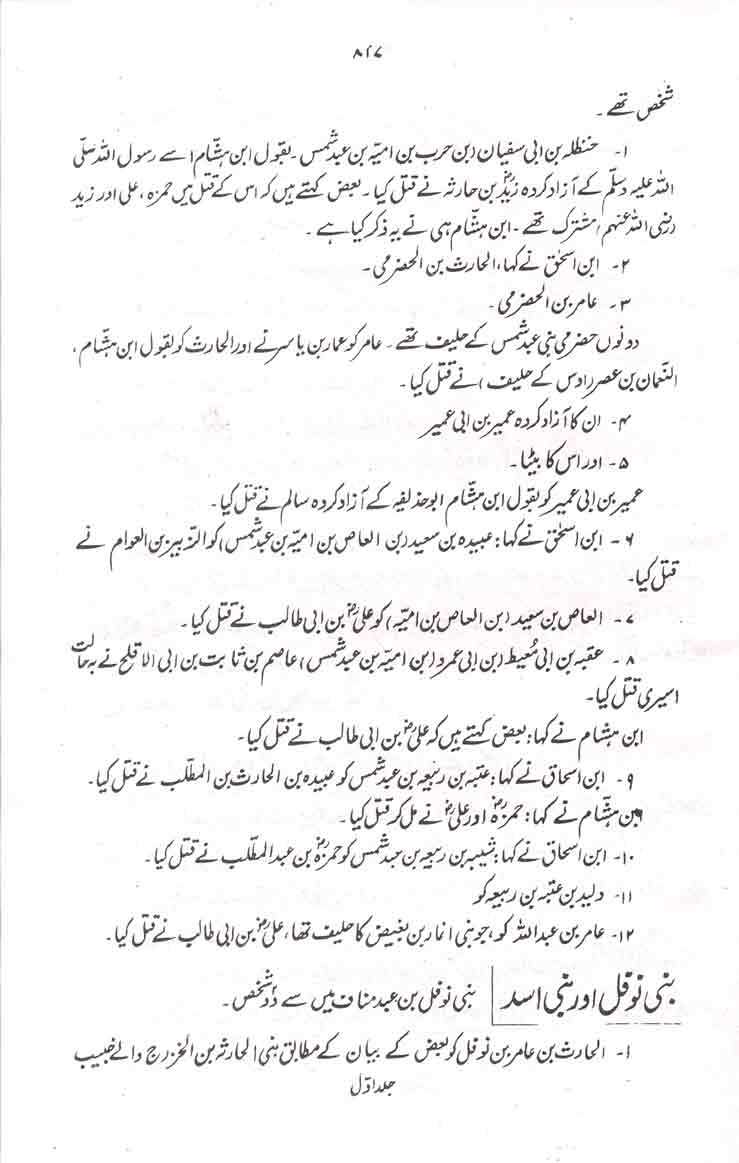 ۸۲۷
شخص تھے۔
۱- حنظلہ بن ابی سفیان (بن حرب بن امیّہ بن عبد شمس۔ بقول ابن ہشام اسے رسول اللہ صلّی
اللہ علیہ وسلّم کے آزاد کردہ زیدؓ بن حارثہ نے قتل کیا۔ بعض کہتے ہیں کہ اس کے قتل میں حمزہ، علی اور زید
(رضی اللہ عنہم) مشترک تھے۔ ابن ہشام ہی نے یہ ذکر کیا ہے۔
۲- ابن اسحٰق نے کہا، الحارث بن الحضرمی۔
۳- عامر بن الحضرمی۔
دونوں حضرمی بنی عبد شمس کے حلیف تھے۔ عامر کو عمار بن یاسر نے اور الحارث کو بقول ابن ہشام،
النّعمان بن عصر (اوس کے حلیف) نے قتل کیا۔
۴- ان کا آزاد کردہ عمیر بن ابی عمیر
۵- اور اس کا بیٹا۔
عمیر بن ابی عمیر کو بقول ابن ہشام ابو حذیفہ کے آزاد کردہ سالم نے قتل کیا۔
۶- ابن اسحٰق نے کہا: عبیدہ بن سعید (بن العاص بن امیّہ بن عبد شمس) کو الزبیر بن العوام نے
قتل کیا۔
۷- العاص بن سعید (بن العاص بن امیّہ) کو علیؓ بن ابی طالب نے قتل کیا۔
۸- عقبہ بن ابی مُعیط (بن ابی عمرو (بن امیہ بن عبد شمس) عاصم بن ثابت بن ابی الاقلح نے بہ حالت
اسیری قتل کیا۔
ابن ہشام نے کہا: بعض کہتے ہیں کہ علیؓ بن ابی طالب نے قتل کیا۔
۹- ابن اسحاق نے کہا: عتبہ بن ربیعہ بن عبد شمس کو عبیدہ بن الحارث بن المطّلب نے قتل کیا۔
ابن ہشّام نے کہا: حمزہؓ اور علیؓ نے مل کر قتل کیا۔
۱۰- ابن اسحاق نے کہا: شیبہ بن ربیعہ بن عبد شمس کو حمزہؓ بن عبد المطّلب نے قتل کیا۔
۱۱- ولید بن عتبہ بن ربیعہ کو
۱۲- عامر بن عبد اللہ کو، جو بنی انمار بن بغیض کا حلیف تھا، علیؓ بن ابی طالب نے قتل کیا۔
بنی نوفل اور بنی اسد | بنی نوفل بن عبد مناف میں سے دو شخص۔
۱- الحارث بن عامر بن نوفل کو بعض کے بیان کے مطابق بنی الحارثہ بن الخزرج والے خبیب
جلد اوّل